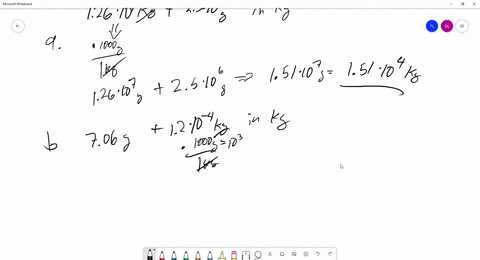 Microsoft Whiteboard
1.26·10⁴ kg + 2.5·10⁶ g in kg
a.
·1000g
1kg
1.26·10⁷ g + 2.5·10⁶ g ⇒ 1.51·10⁷ g = 1.51·10⁴ kg
b 7.06 g + 1.2·10⁻⁴ kg in kg
·1000g = 10³
1kg